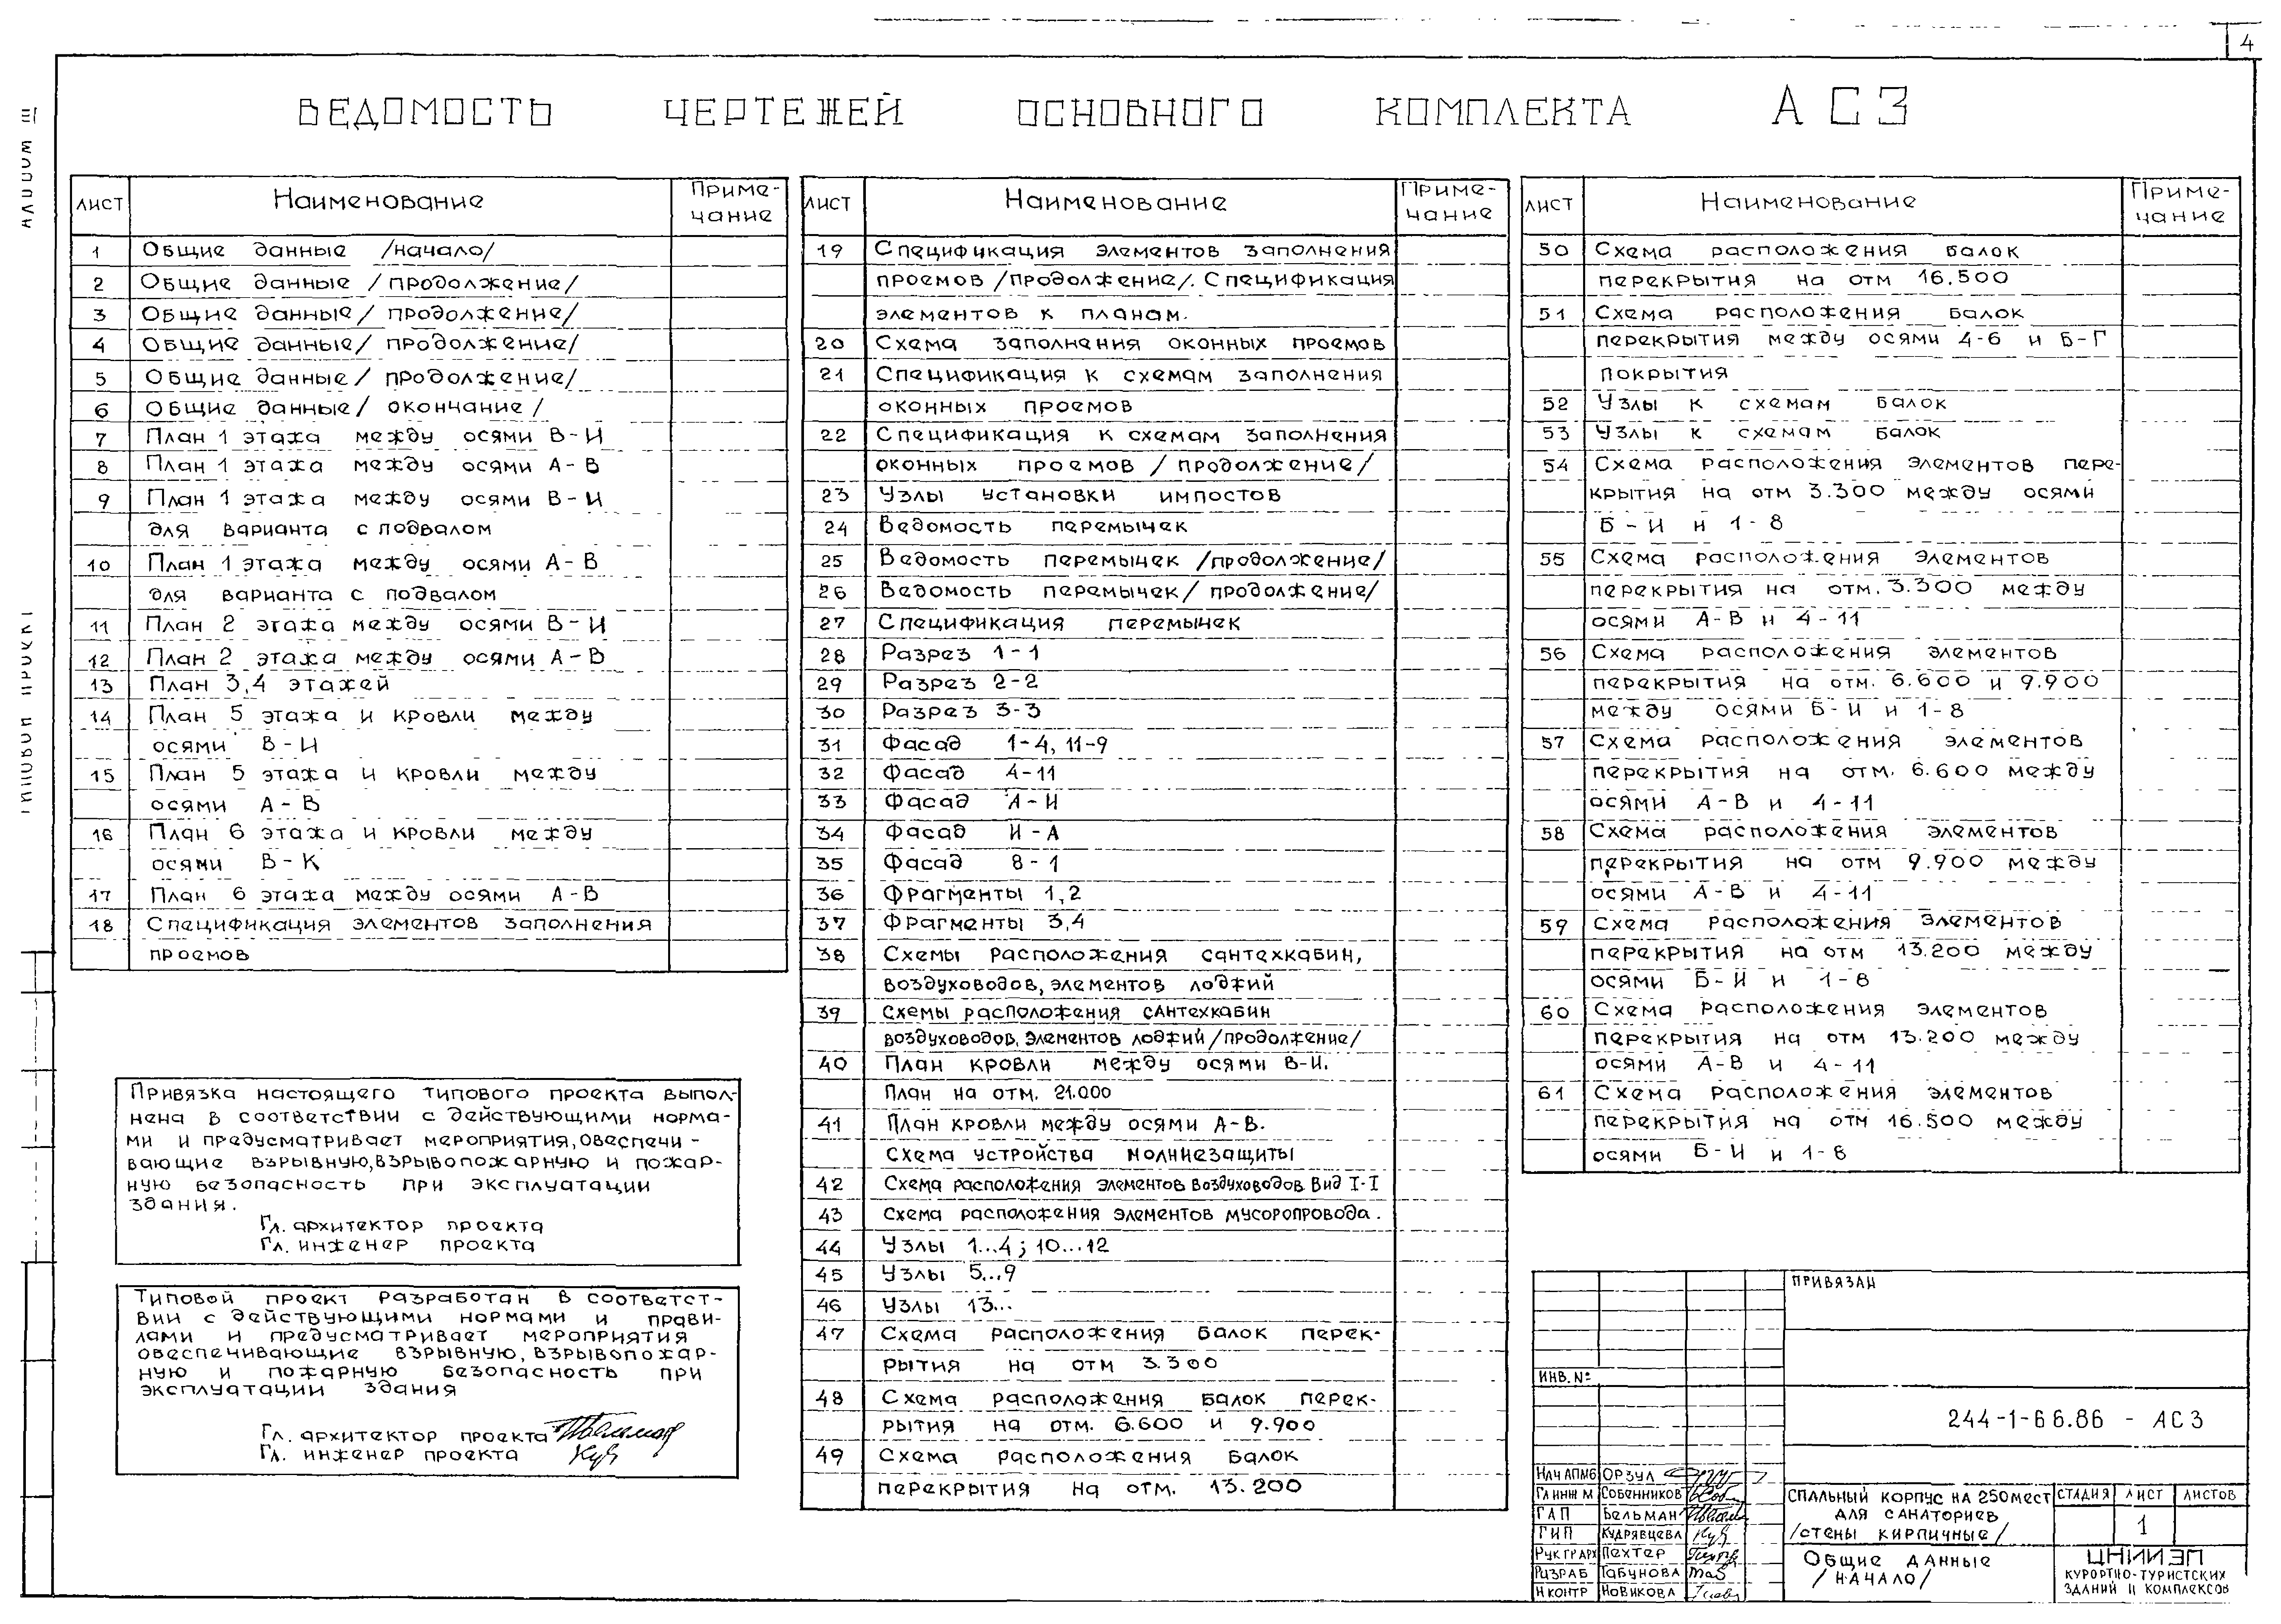 4
Альбом III
Типовой проект
Ведомость чертежей основного комплекта АС3
лист Наименование Приме-
чание
1 Общие данные /начало/
2 Общие данные /продолжение/
3 Общие данные /продолжение/
4 Общие данные /продолжение/
5 Общие данные /продолжение/
6 Общие данные /окончание/
7 План 1 этажа между осями В-И
8 План 1 этажа между осями А-В
9 План 1 этажа между осями В-И
для варианта с подвалом
10 План 1 этажа между осями А-В
для варианта с подвалом
11 План 2 этажа между осями В-И
12 План 2 этажа между осями А-В
13 План 3,4 этажей
14 План 5 этажа и кровли между
осями В-И
15 План 5 этажа и кровли между
осями А-В
16 План 6 этажа и кровли между
осями В-К
17 План 6 этажа между осями А-В
18 Спецификация элементов заполнения
проемов
лист Наименование Приме-
чание
19 Спецификация элементов заполнения
проемов /продолжение/. Спецификация
элементов к планам.
20 Схема заполнения оконных проемов
21 Спецификация к схемам заполнения
оконных проемов
22 Спецификация к схемам заполнения
оконных проемов /продолжение/
23 Узлы установки импостов
24 Ведомость перемычек
25 Ведомость перемычек /продолжение/
26 Ведомость перемычек /продолжение/
27 Спецификация перемычек
28 Разрез 1-1
29 Разрез 2-2
30 Разрез 3-3
31 Фасад 1-4, 11-9
32 Фасад 4-11
33 Фасад А-И
34 Фасад И-А
35 Фасад 8-1
36 Фрагменты 1,2
37 Фрагменты 3,4
38 Схемы расположения сантехкабин,
воздуховодов, элементов лоджий
39 Схемы расположения сантехкабин
воздуховодов, элементов лоджий /продолжение/
40 План кровли между осями В-И.
План на отм. 21.000
41 План кровли между осями А-В.
Схема устройства молниезащиты
42 Схема расположения элементов воздуховодов Вид I-I
43 Схема расположения элементов мусоропровода.
44 Узлы 1...4; 10...12
45 Узлы 5...9
46 Узлы 13...
47 Схема расположения балок перек-
рытия на отм 3.300
48 Схема расположения балок перек-
рытия на отм. 6.600 и 9.900
49 Схема расположения балок
перекрытия на отм. 13.200
лист Наименование Приме-
чание
50 Схема расположения балок
перекрытия на отм 16.500
51 Схема расположения балок
перекрытия между осями 4-6 и Б-Г
покрытия
52 Узлы к схемам балок
53 Узлы к схемам балок
54 Схема расположения элементов пере-
крытия на отм 3.300 между осями
Б-И и 1-8
55 Схема расположения элементов
перекрытия на отм. 3.300 между
осями А-В и 4-11
56 Схема расположения элементов
перекрытия на отм. 6.600 и 9.900
между осями Б-И и 1-8
57 Схема расположения элементов
перекрытия на отм. 6.600 между
осями А-В и 4-11
58 Схема расположения элементов
перекрытия на отм 9.900 между
осями А-В и 4-11
59 Схема расположения элементов
перекрытия на отм 13.200 между
осями Б-И и 1-8
60 Схема расположения элементов
перекрытия на отм 13.200 между
осями А-В и 4-11
61 Схема расположения элементов
перекрытия на отм 16.500 между
осями Б-И и 1-8
Привязка настоящего типового проекта выпол-
нена в соответствии с действующими норма-
ми и предусматривает мероприятия, обеспечи-
вающие взрывную, взрывопожарную и пожар-
ную безопасность при эксплуатации
здания.
Гл. архитектор проекта
Гл. инженер проекта
Типовой проект разработан в соответст-
вии с действующими нормами и прави-
лами и предусматривает мероприятия
обеспечивающие взрывную, взрывопожар-
ную и пожарную безопасность при
эксплуатации здания
Гл. архитектор проекта
Гл. инженер проекта
Привязан
Инв. №
244-1-66.86 - АС3
Нач АПМ6 Орзул
Гл инж м Собенников
ГАП Бельман
ГИП Кудрявцева
Рук гр арх Пехтер
Разраб Табунова
Н контр Новикова
Спальный корпус на 250 мест
для санаториев
/стены кирпичные/
Стадия Лист Листов
1
Общие данные
/начало/
ЦНИИЭП
курортно-туристских
зданий и комплексов